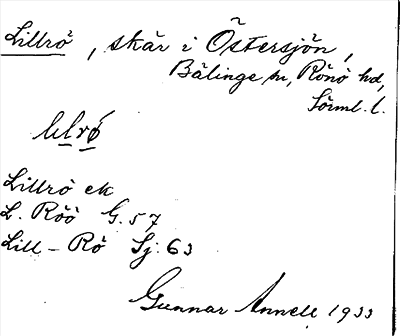 Lillrö, skär i Östersjön,
Bälinge sn, Rönö hd,
Sörml. l.
lilrö́
Lillrö ek
L. Röö G. 57
Lill-Rö Sj. 63
Gunnar Annell 1933